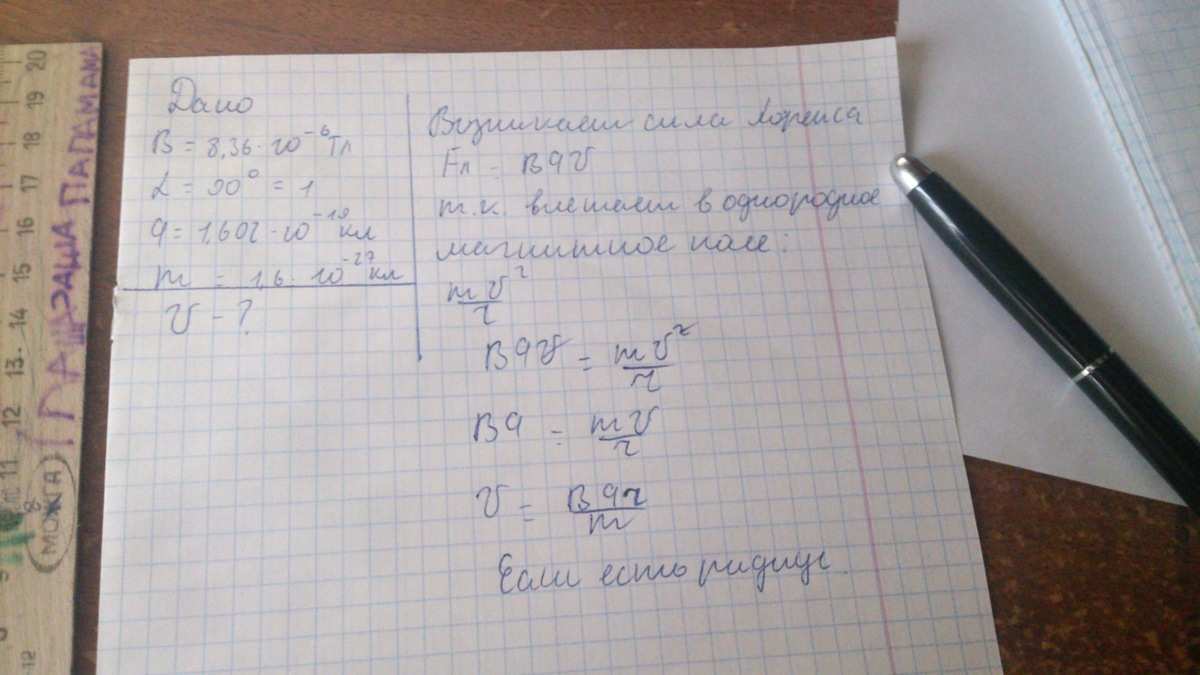 Дано
B = 8,36 · 10⁻⁶ Тл
α = 90° = 1
q = 1,602 · 10⁻¹⁹ кл
m = 1,6 · 10⁻²⁷ кл
v - ?
Возникает сила Лоренса
Fл = Bqv
т.к. влетает в однородное
магнитное поле:
mv²/r
Bqv = mv²/r
Bq = mv/r
v = Bqr/m
Если есть радиус.
20 19 18 17 16 15 14 13 12 11
ПАПАМАМА
МОЖГА